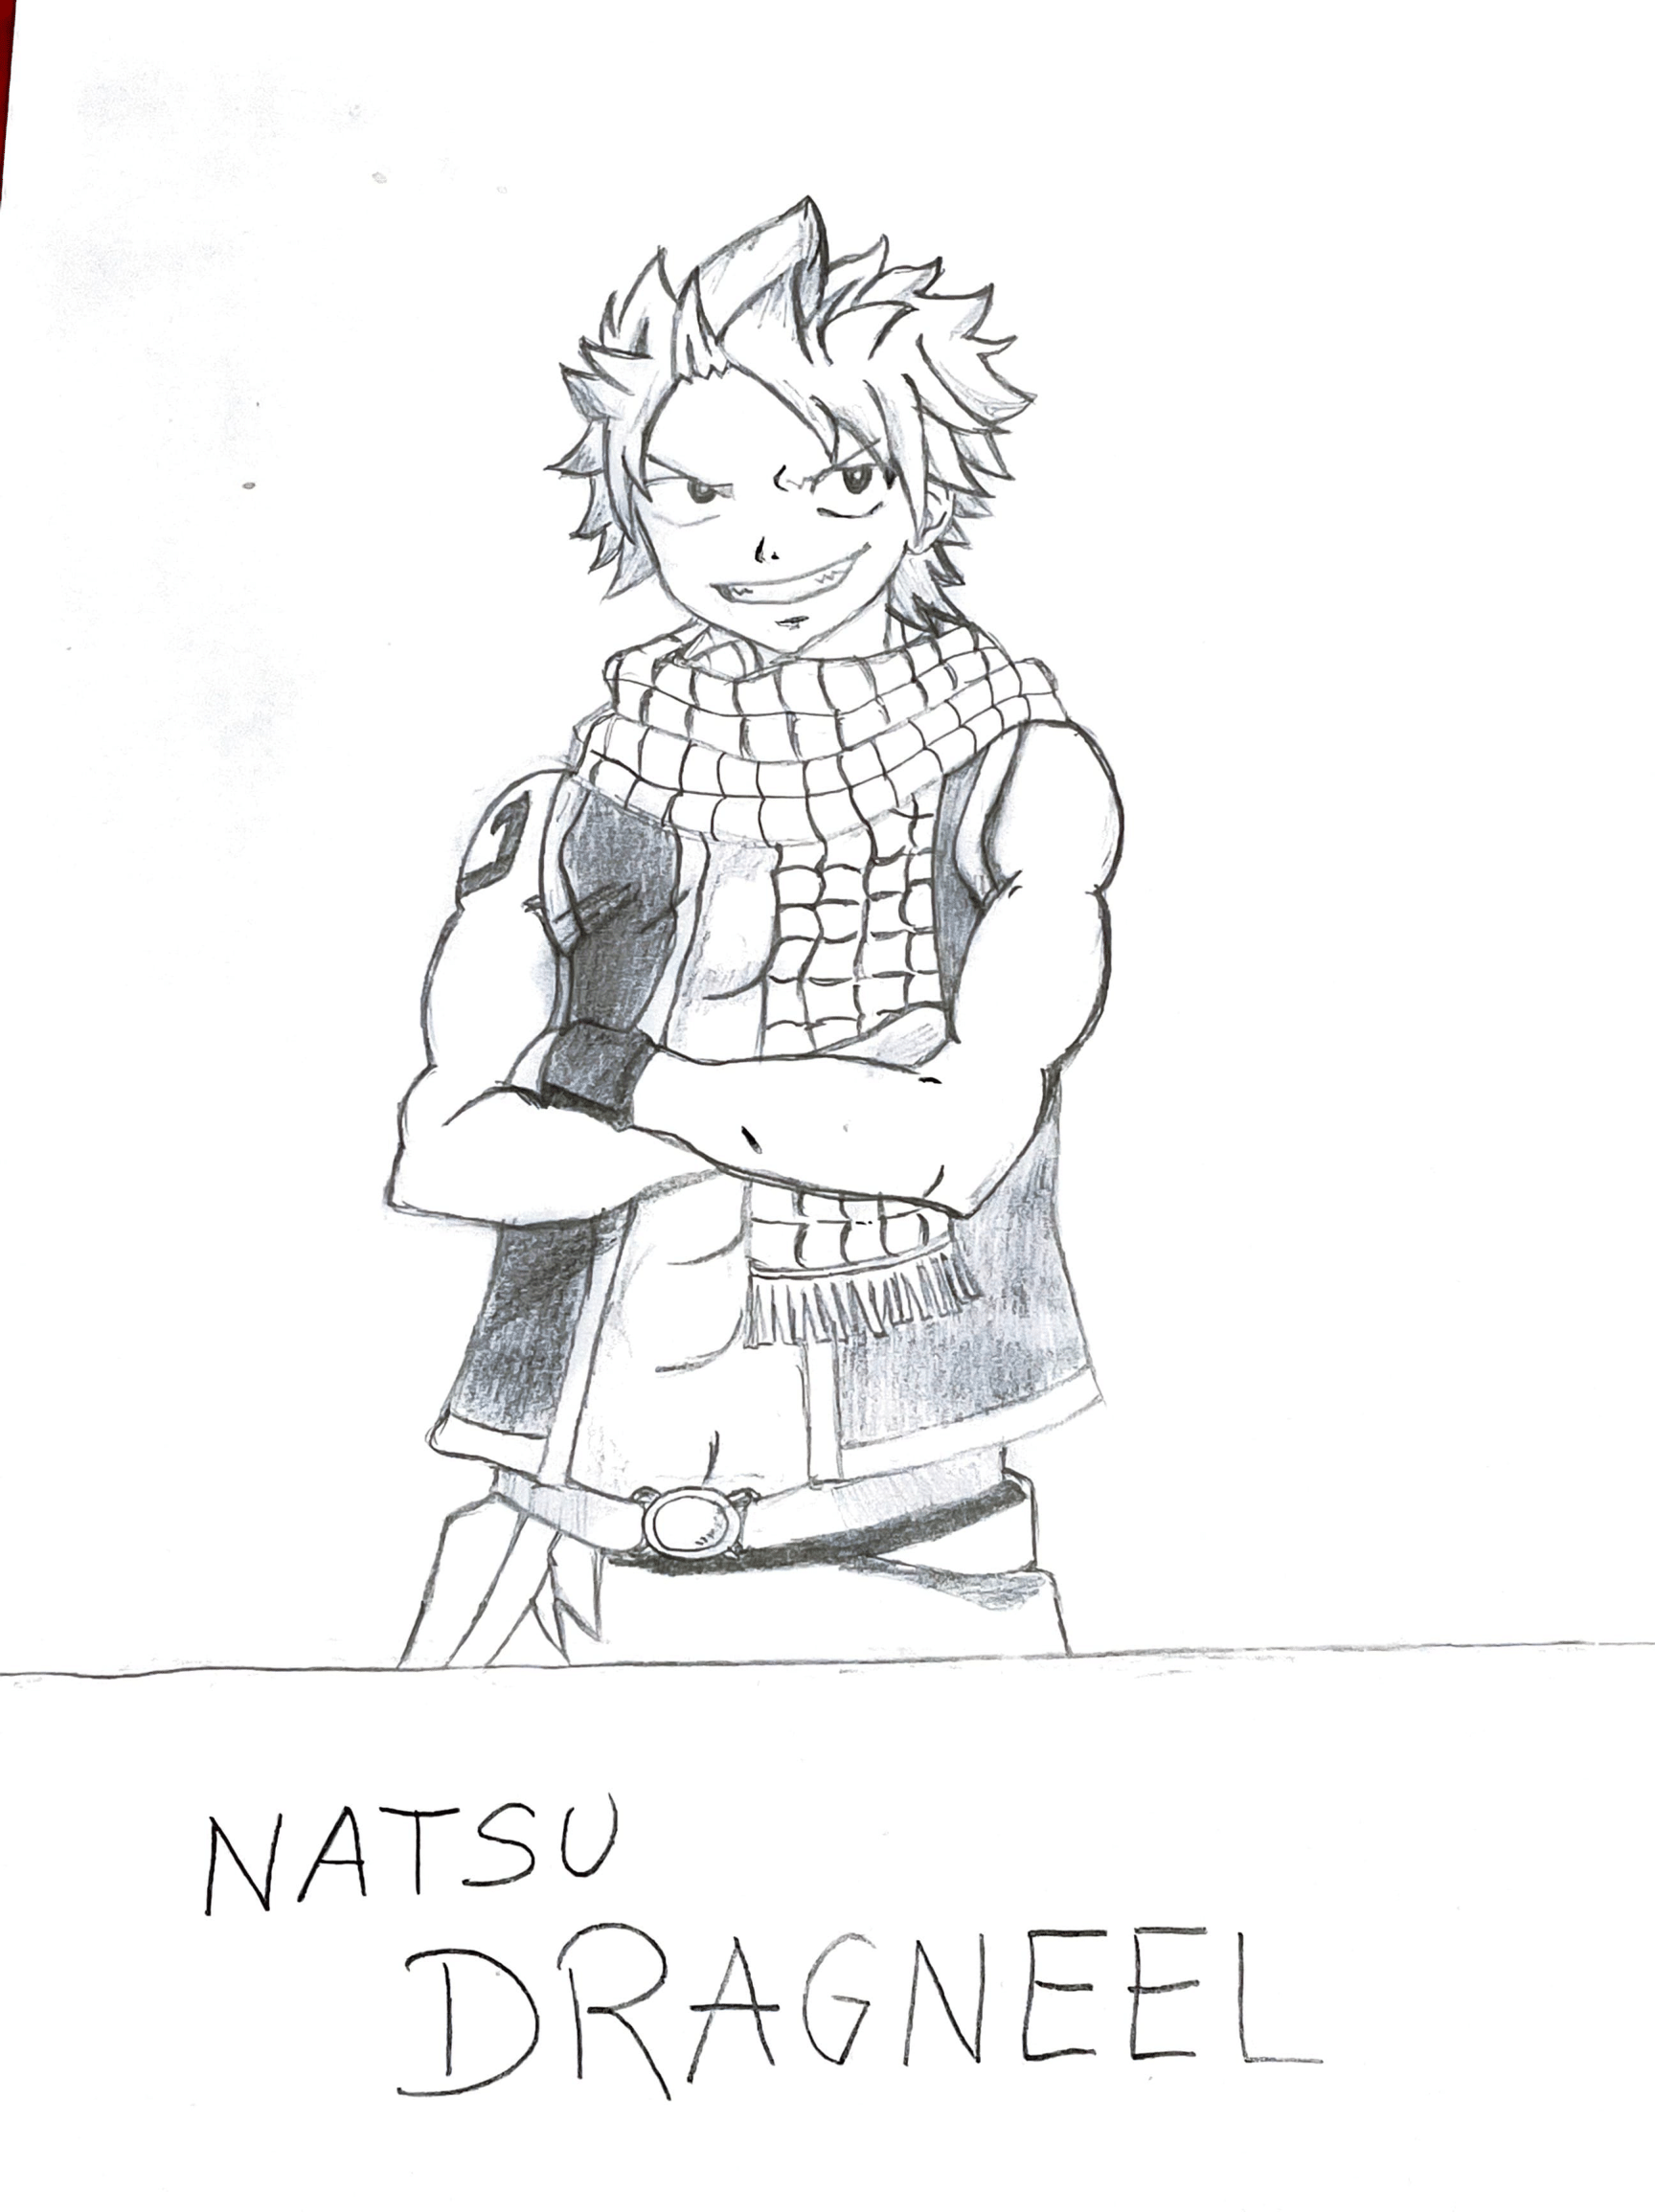 NATSU
DRAGNEEL